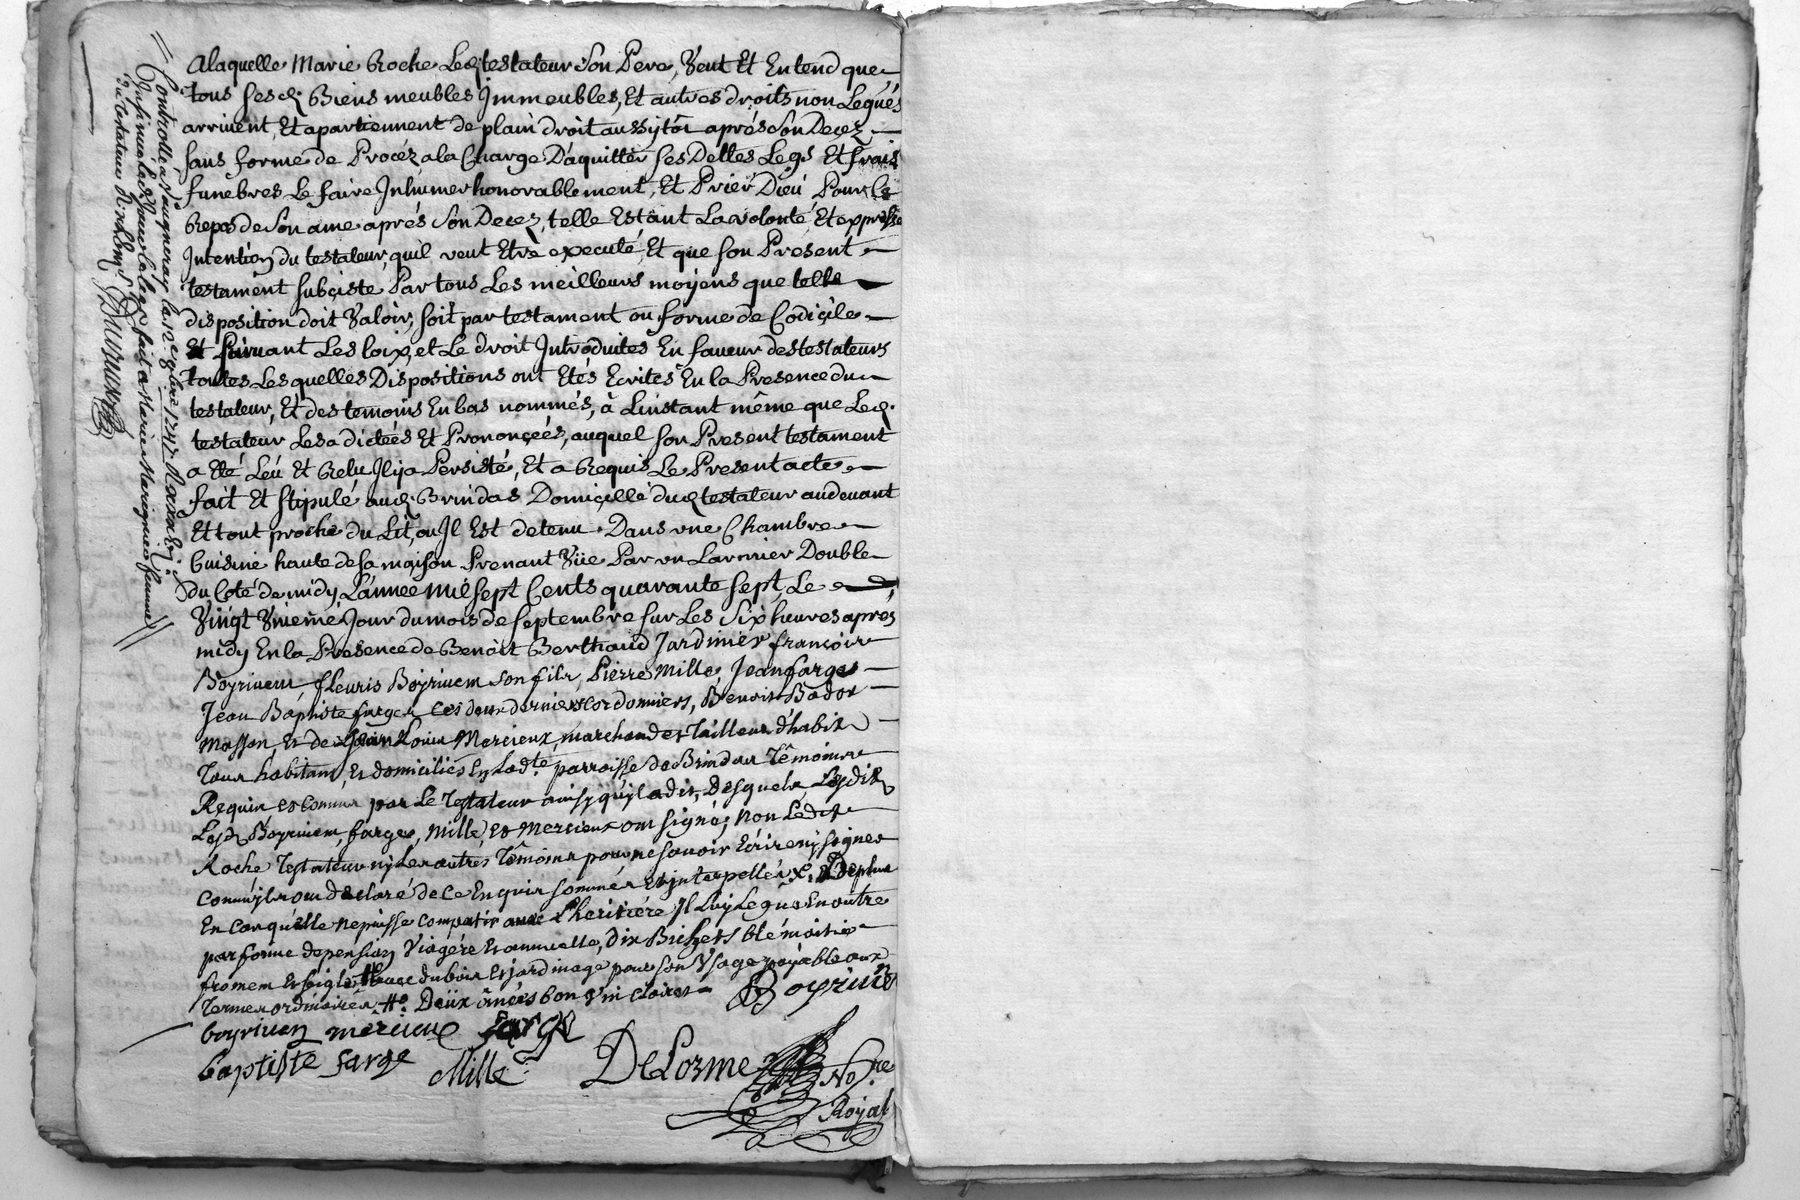 Alaquelle Marie Roche Led. testateur Son Pere, Veut Et Entend que
tous sesd. Biens meubles Immeubles, Et autres droits non Legués
arrivent, Et apartiennent de plain droit aussytôt aprés Son Decez
sans forme de Procéz, a la Charge D'aquitter ses Dettes Legs Et frais
funebres Le faire Inhumer honorablement, Et Prier Dieu Pour le
Repos de Son ame aprés Son Decez, telle Estant La volonté Et expresse
Intention du testateur, quil veut Etre executé, Et que son Present
testament subciste Par tous Les meilleurs moyens que telle
disposition doit Valoir, soit par testament ou forme de Codicile
Et suivant Les loix, et Le droit Introduites En faveur des testateurs
toutes Lesquelles Dispositions ont Etés Ecrites En la Presence du
testateur, Et des temoins En bas nommés, à L'instant même que Led.
testateur Les a dictées Et Prononçées, auquel son Present testament
a Eté Leu Et Relu Il y a Persisté, Et a Requis Le Present acte
fait Et stipulé aud. Brindas Domicille dud. testateur au devant
Et tout proche du Lit, ou Il Est detenu Dans une Chambre
Cuisine haute de sa maison Prenant Vüe Par un Larmier Double
du Coté de midy L'année mil sept Cents quarante sept, Le
Vingt Unieme Jour du mois de septembre sur Les Six heures aprés
midy En la Presence de Benoit Berthaud Jardinier françois
Boyriven, fleuris Boyriven son fils, Pierre Mille, Jean farges
Jean Baptiste farges Ces deux derniers cordonniers, Benoist Bador
Masson, Et de Jean Louis Mercieux, marchand et Tailleur d'habits
Tous habitans, Et domiciliés En Lad.te parroisse de Brindas Témoins
Requis et Connus par Le Testateur ainsy qu'il a dit, Desquels Lesdits
Lesd. Boyriven, farges, Mille Et Mercieux ont signés Non Ledit
Roche Testateur ny Les autres Témoins pour ne savoir Ecrire ny signer
Comm'ils ont declaré de ce Enquis sommés Et interpellés X. De plus
En Cas qu'elle ne puisse compatir avec L'heritiére Il Luy Legue En outre
par forme de pension Viagére Et annuelle, dix Bichets blé moitié
froment Et seigle Avec du bois Et jardinage pour son Usage payable aux
Termes ordinaires. #. Deux ânées bon vin Clairet Boyriven
boyriven mercieux farge
baptiste farge Mille DeLorme No.re
Royal
Controllé a Vaugneray le 12 8bre 1747
Insinué led. Jour le legs fait a Marie Marrigneo femme
du testateur